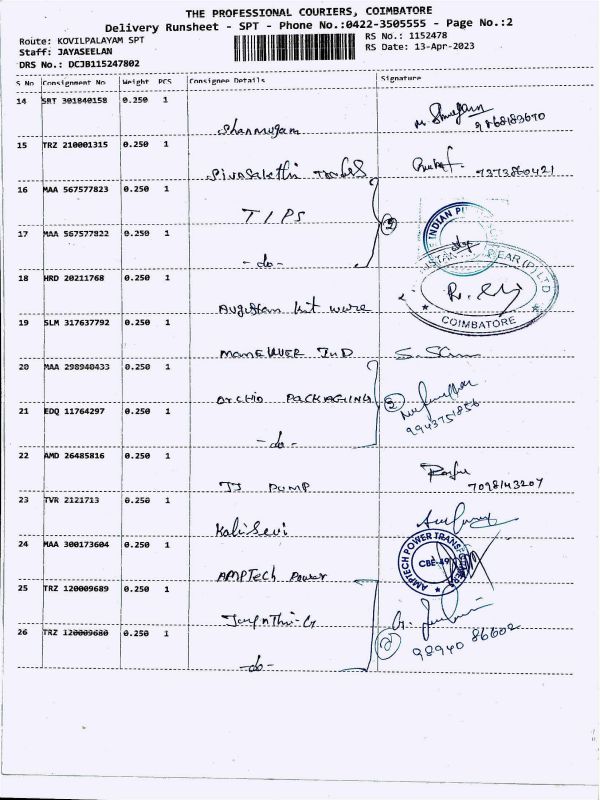 THE PROFESSIONAL COURIERS, COIMBATORE
Delivery Runsheet - SPT - Phone No.:0422-3505555 - Page No.:2
Route: KOVILPALAYAM SPT
RS No.: 1152478
Staff: JAYASEELAN
RS Date: 13-Apr-2023
DRS No.: DCJB115247802
S No Consignment No Weight PCS Consignee Details Signature
14 SRT 301840158 0.250 1
Shanmugam
15 TRZ 210001315 0.250 1
Sivasakthi
7373860421
16 MAA 567577823 0.250 1
TIPS
2
17 MAA 567577822 0.250 1
-do-
18 HRD 20211768 0.250 1
Augustan knit ware
COIMBATORE
19 SLM 317637792 0.250 1
20 MAA 298940433 0.250 1
ORCHID PACKAGING
2
9943751856
21 EDQ 11764297 0.250 1
-do-
22 AMD 26485816 0.250 1
PUMP
7098143207
23 TVR 2121713 0.250 1
Kalisevi
24 MAA 300173604 0.250 1
AMPTech Power
AMPTECH POWER TRANSFORMERS
CBE-49
25 TRZ 120009689 0.250 1
26 TRZ 120009680 0.250 1
2
98940 86602
-do-